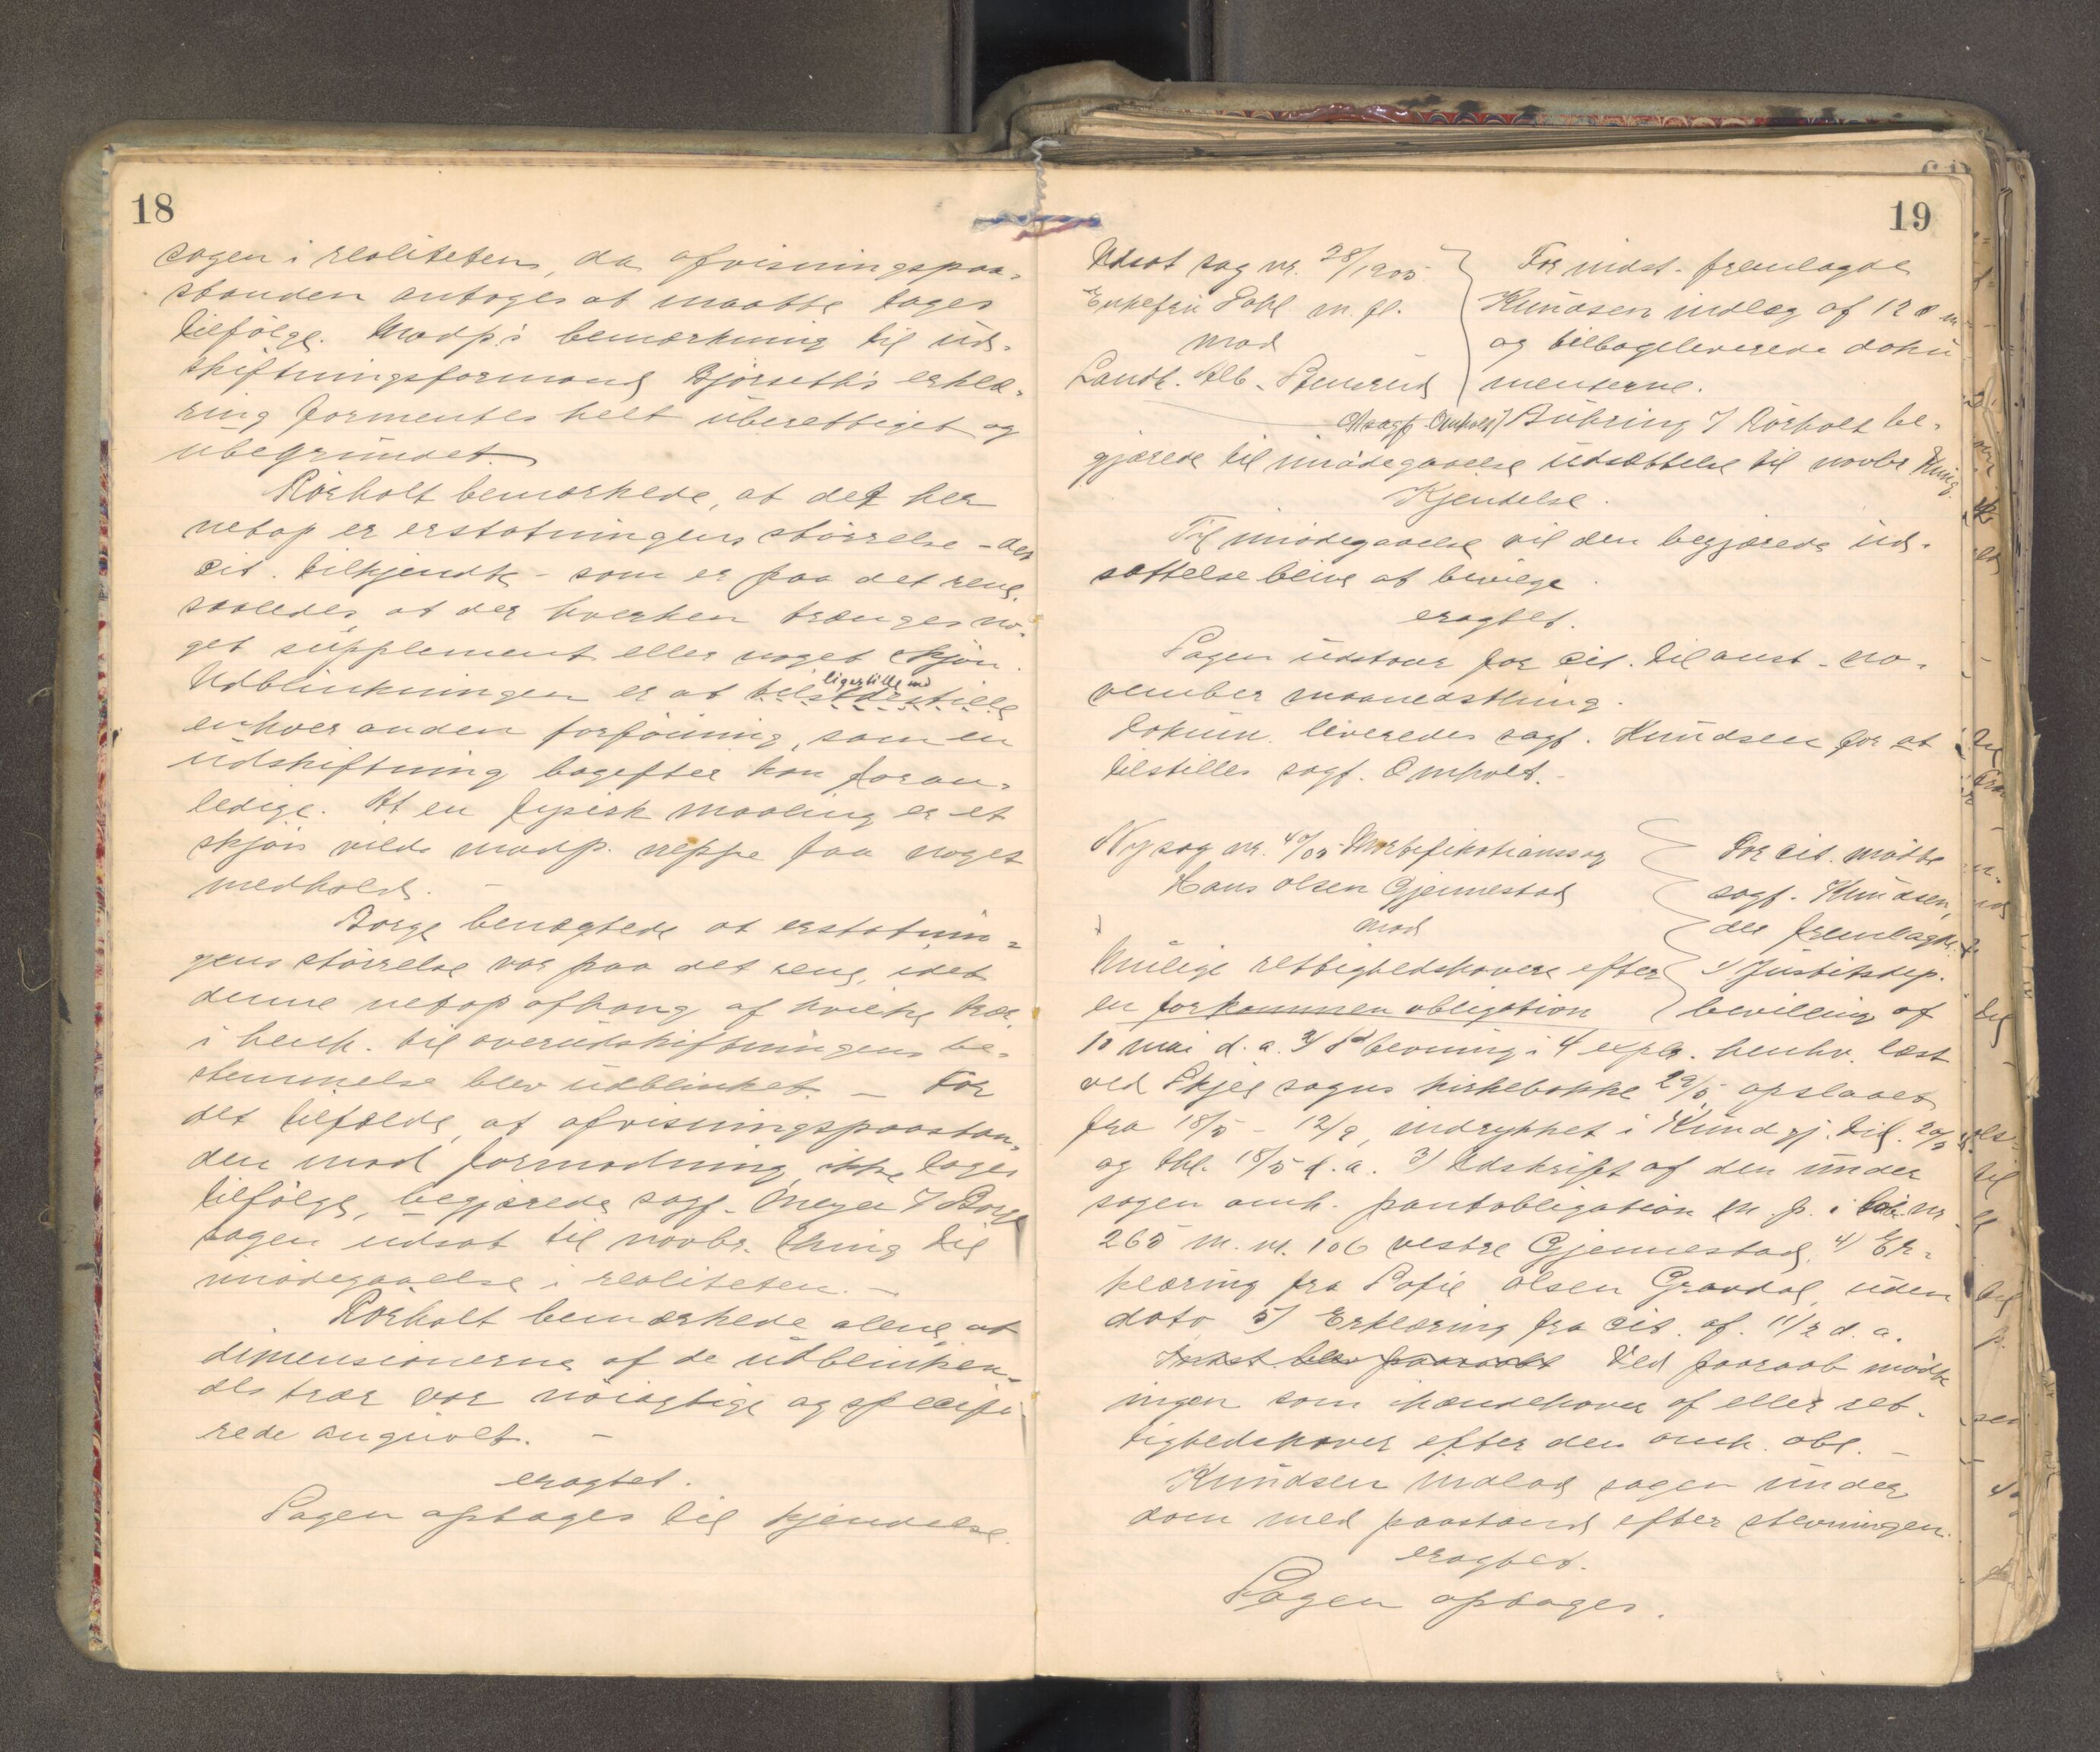 18
sagen i realiteten, da afvisningspaa-
standen antoges at maatte tages
tilfølge. Modp.s bemærkning til ud-
skiftningsformand Bjørseth's erklæ-
ring formentes helt uberettiget og
ubegrundet.
Rørholt bemærkede, at det her
netop er erstatningens størrelse - den
cit. tilkjendte - som er paa det rene
saaledes, at der hverken trænges no-
get supplement eller noget skjøn.
ligestille med
Udblinkningen er at
enhver anden forføining, som en
udskiftning bagefter kan foran-
ledige. At en fysisk maaling er et
skjøn vilde modp. neppe faa noget
medhold. -
Borge benægtede at erstatnin-
gens størrelse var paa det rene, idet
denne netop afhang af hvilke træ
i henh. til overudskiftningens be-
stemmelse blev udblinket. - For
det tilfælde, at afvisningspaastan-
den mod formodning ikke tages
tilfølge, begjærede sagf. Meyer / Borge
sagen udsat til novbr. thing til
imødegaaelse i realiteten. -
Rørholt bemærkede alene, at
dimensionerne af de udblinken-
de trær var nøiagtige og specifi-
rede angivelt. -
eragtet.
Sagen optages til kjendelse.
19
Udsat sag nr. 28/1905
Enkefru Dahl m. fl.
mod
Landh. Alb.
For indst. fremlagde
Knudsen indlæg af 12 d. m.
og tilbageleverede doku
menterne.
Omholt) Buhring / Rørholt be-
gjærede til imødegaaelse udsættelse til novbr thing.
Kjendelse.
Til imødegaaelse vil den begjærede ud-
sættelse blive at bevilge.
eragtet.
Sagen udstaar for cit. til anst. no-
vember maanedsthing.
Dokum. leveredes sagf. Knudsen for at
tilstilles sagf. Omholt. -
Ny sag nr. 40/05 Mortifikationssag
Hans Olsen Gjennestad
mod
Mulige rettighedshavere efter
en forkommen obligation
For cit. mødte
sagf. Knudsen,
der fremlagde
1) Justitsdep.
bevilling af
10 mai d. a. 2) Stevning i 4 explr. henhv. læst
ved Skjee sogns kirkebakke 29/5, opslaaet
fra 18/5 - 12/9, indrykket i Kundgj. tid. 20/5
og tbl. 18/5 d. a. 3) Udskrift af den under
sagen omh. pantobligation m. p. i nr
265 m. nr. 106 vestre Gjennestad. 4) Er-
klæring fra Sofie Olsen Gravdal, uden
dato 5) Erklæring fra cit. af. 11/2 d. a.
Ved paaraab mødte
ingen som ihændehaver af eller ret-
tighedshaver efter den omh. obl. -
Knudsen indlod sagen under
dom med paastand efter stevningen.
eragtet.
Sagen optages.